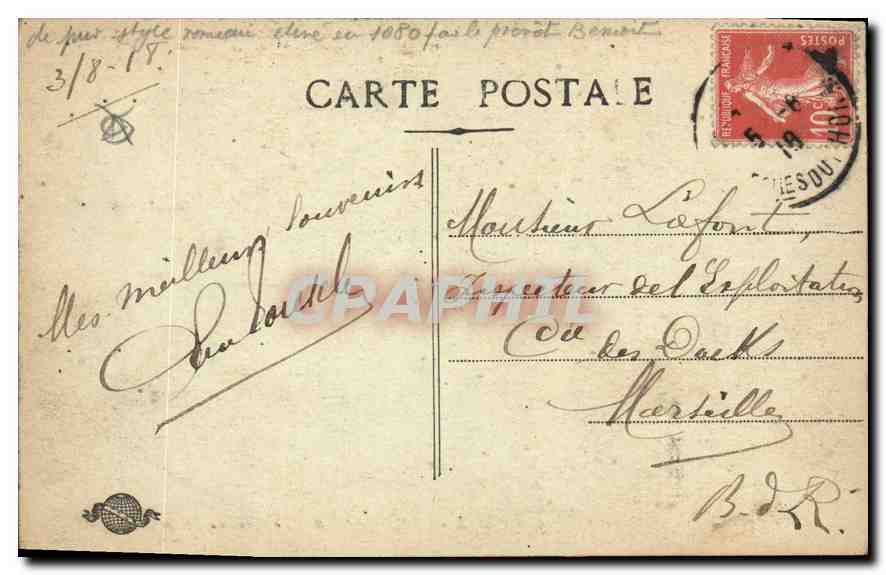 de pur style roman élevé en 1080 par le prévôt Benoit
3/8-18.
CARTE POSTALE
REPUBLIQUE FRANÇAISE
POSTES
10c
5 -8
19
DU RHONE
Mes meilleurs souvenirs
Monsieur Lafont,
Inspecteur de l'Exploitation
Cie des Docks
Marseille
B. d. R.
CPAPHIL